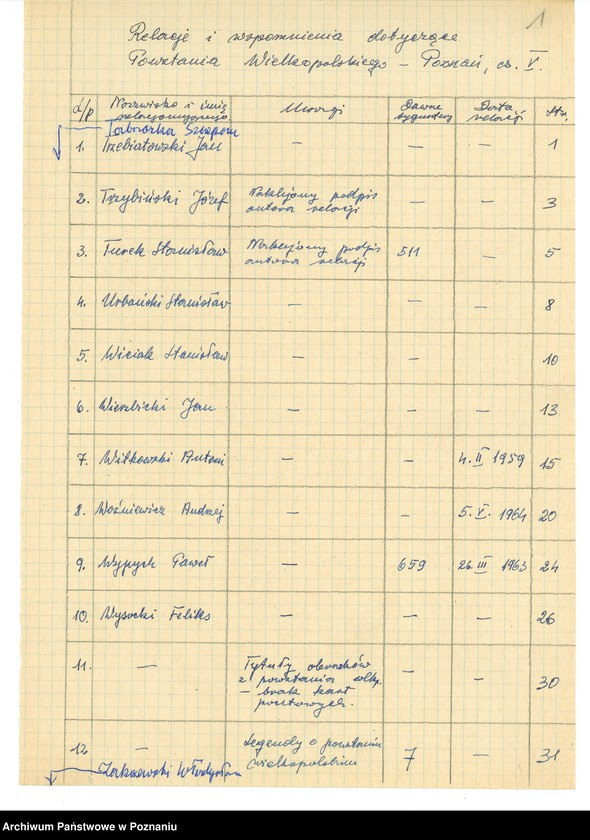 1
Relacje i wspomnienia dotyczące
Powstania Wielkopolskiego – Poznań, cz. V.
L/p Nazwisko i imię relacjonującego Uwagi Dawne sygnatury Data relacji Str.
Szczepan
1. Trzebiatowski Jan — — — 1
2. Trzybiński Józef Naklejony podpis autora relacji — — 3
3. Turek Stanisław Naklejony podpis autora relacji 511 — 5
4. Urbański Stanisław — — — 8
5. Wiciak Stanisław — — 10
6. Wierzbicki Jan — — — 13
7. Witkowski Antoni — — 4. II 1959 15
8. Woźniewicz Andrzej — — 5. V. 1964 20
9. Wypych Paweł — 659 26. III 1963 24
10. Wysocki Feliks — — — 26
11. — Tytuły obrazków z powstania wlkp. – brak kart pocztowych. — — 30
12 — Legendy o powstaniu wielkopolskim 7 — 31
Archiwum Państwowe w Poznaniu